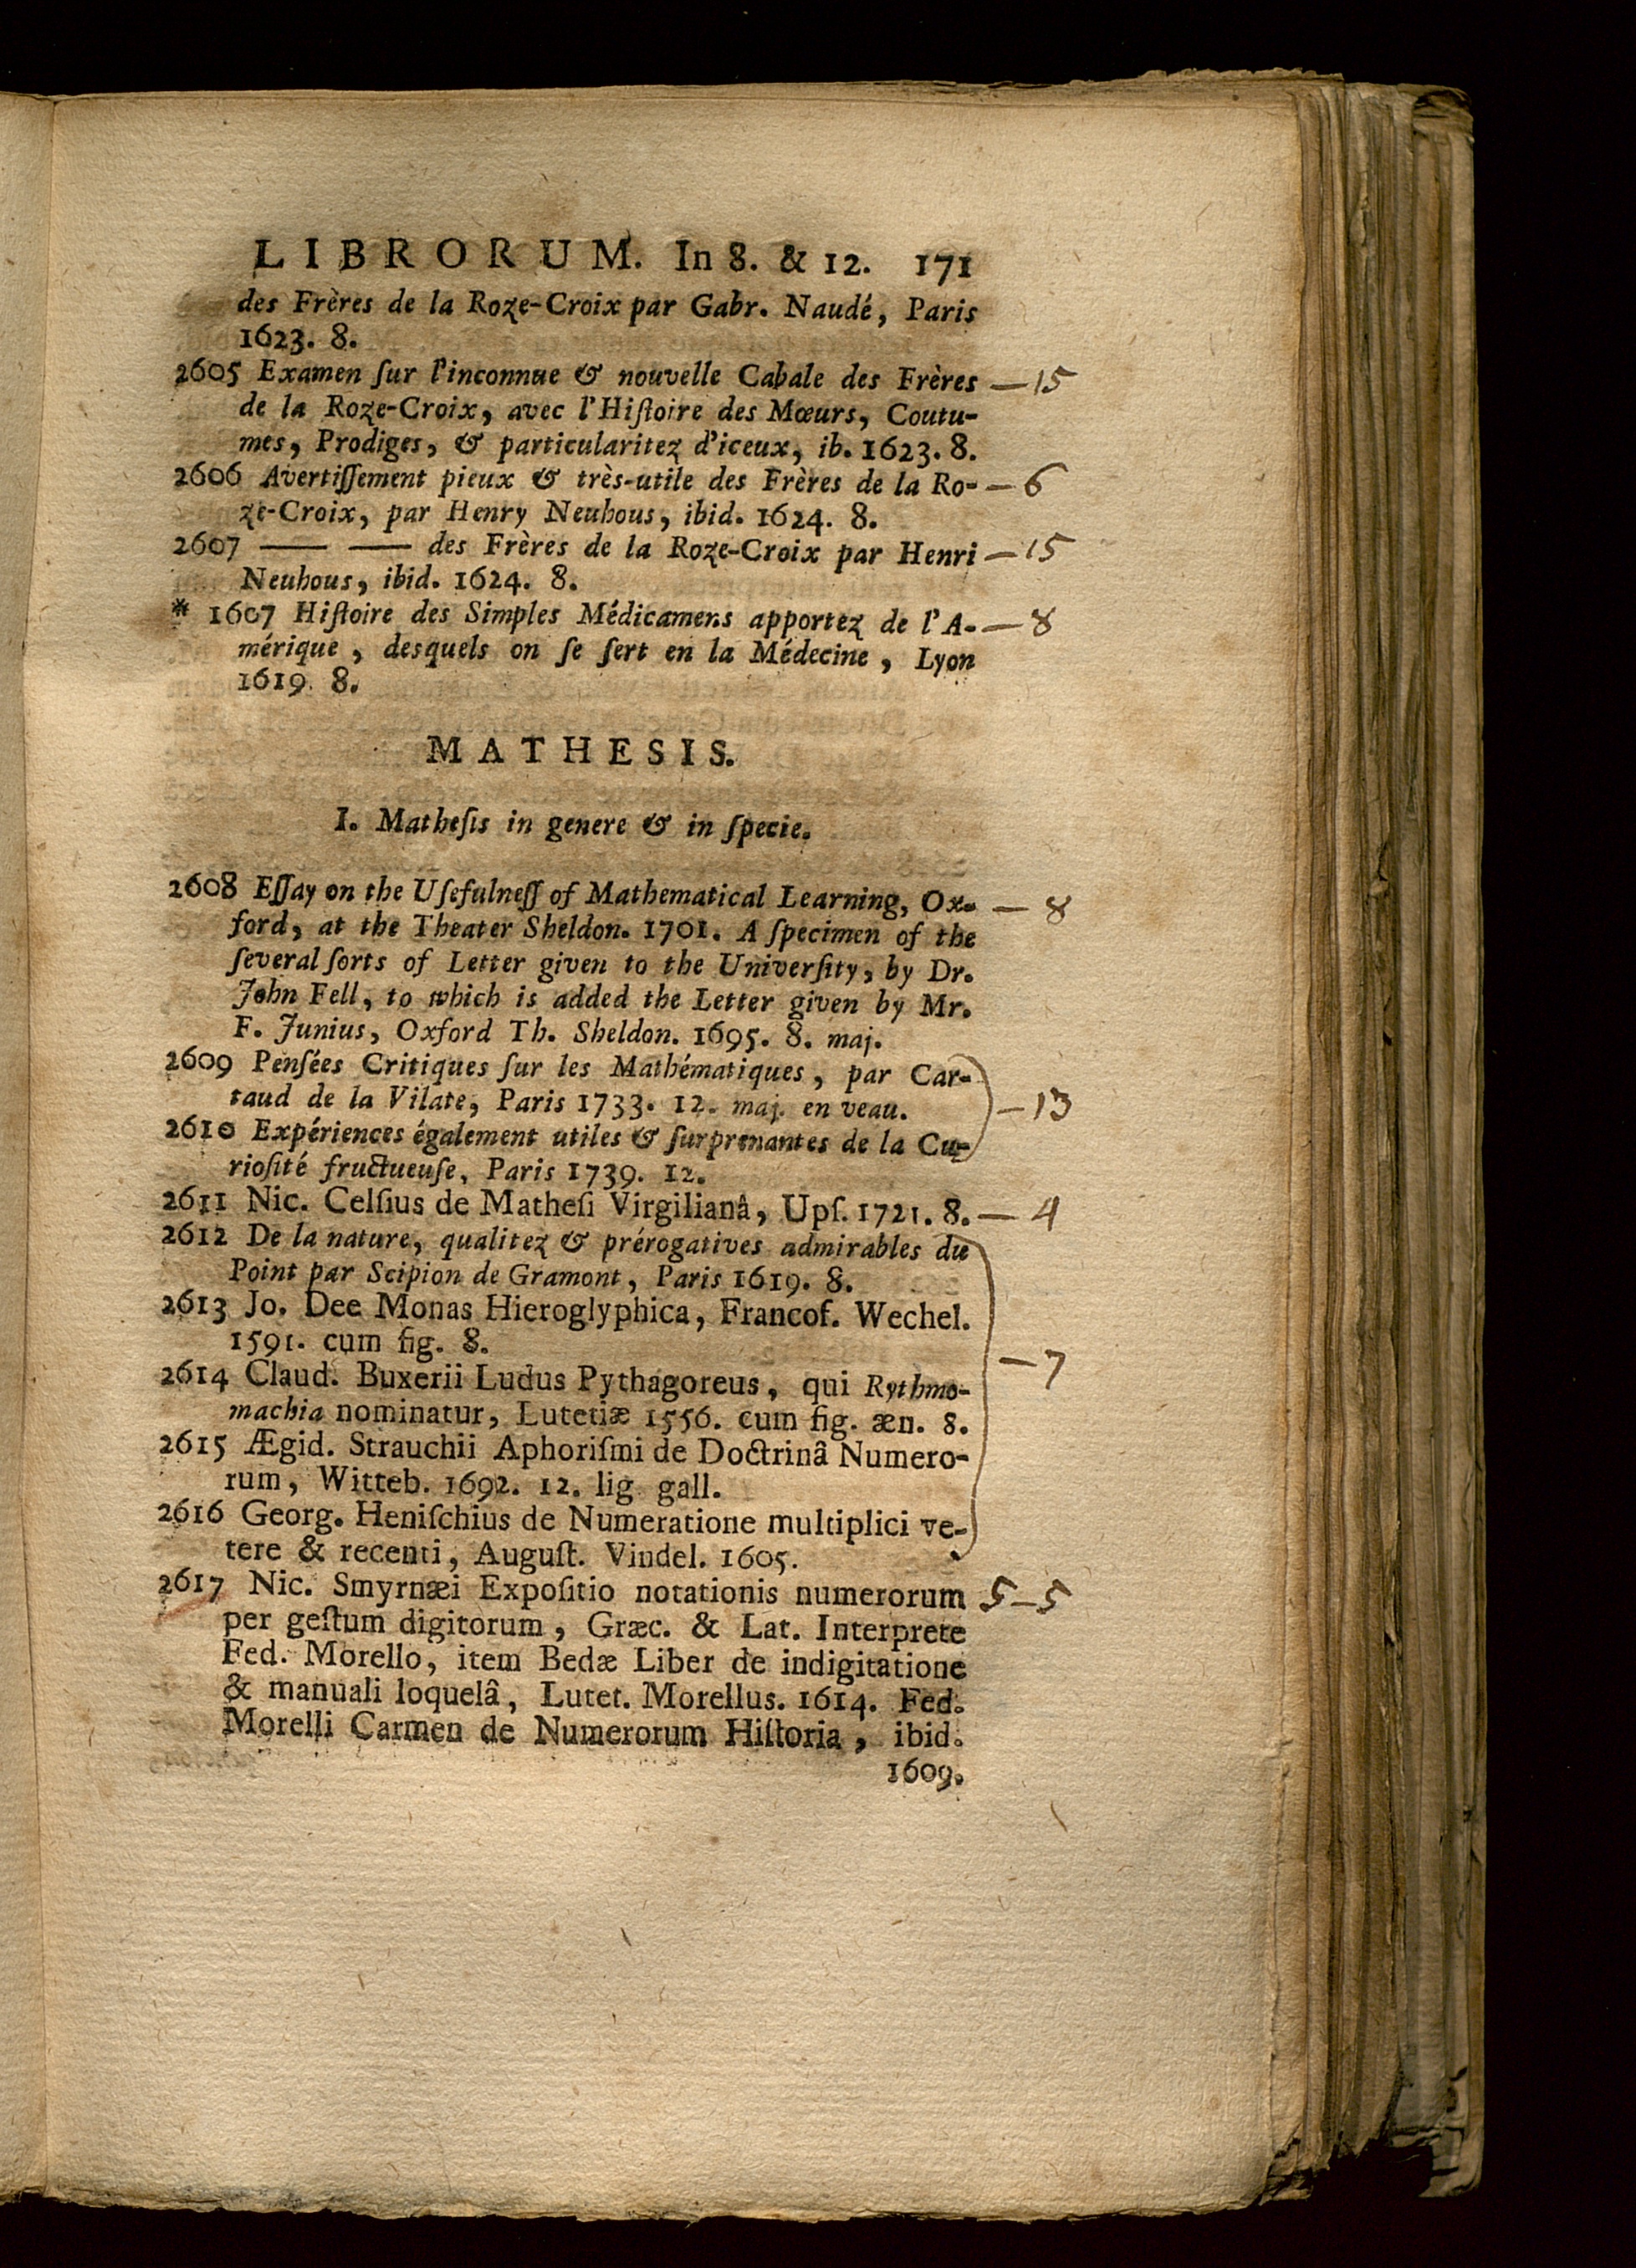 LIBRORUM. In 8. & 12. 171
des Frères de la Roze-Croix par Gabr. Naudé, Paris
1623. 8.
2605 Examen ſur l'inconnue & nouvelle Cabale des Frères — 15
de la Roze-Croix, avec l'Hiſtoire des Mœurs, Coutu-
mes, Prodiges, & particularitez d'iceux, ib. 1623. 8.
2606 Avertiſſement pieux & très-utile des Frères de la Ro- — 6
ze-Croix, par Henry Neuhous, ibid. 1624. 8.
2607 —— —— des Frères de la Roze-Croix par Henri — 15
Neuhous, ibid. 1624. 8.
* 1607 Hiſtoire des Simples Médicamens apportez de l'A- — 8
mérique, desquels on ſe ſert en la Médecine, Lyon
1619. 8.
MATHESIS.
I. Matheſis in genere & in ſpecie.
2608 Eſſay on the Uſefulneſſ of Mathematical Learning, Ox- — 8
ford, at the Theater Sheldon. 1701. A ſpecimen of the
ſeveral ſorts of Letter given to the Univerſity, by Dr.
John Fell, to which is added the Letter given by Mr.
F. Junius, Oxford Th. Sheldon. 1695. 8. maj.
2609 Penſées Critiques ſur les Mathématiques, par Car-
taud de la Vilate, Paris 1733. 12. maj. en veau. — 13
2610 Expériences également utiles & ſurprenantes de la Cu-
rioſité fructueuſe, Paris 1739. 12.
2611 Nic. Celſius de Matheſi Virgilianâ, Upſ. 1721. 8. — 4
2612 De la nature, qualitez & prérogatives admirables du
Point par Scipion de Gramont, Paris 1619. 8.
2613 Jo. Dee Monas Hieroglyphica, Francof. Wechel.
1591. cum fig. 8. — 7
2614 Claud. Buxerii Ludus Pythagoreus, qui Rythmo-
machia nominatur, Lutetiæ 1556. cum fig. æn. 8.
2615 Ægid. Strauchii Aphoriſmi de Doctrinâ Numero-
rum, Witteb. 1692. 12. lig. gall.
2616 Georg. Heniſchius de Numeratione multiplici ve-
tere & recenti, Auguſt. Vindel. 1605.
2617 Nic. Smyrnæi Expoſitio notationis numerorum 5 — 5
per geſtum digitorum, Græc. & Lat. Interprete
Fed. Morello, item Bedæ Liber de indigitatione
& manuali loquelâ, Lutet. Morellus. 1614. Fed.
Morelli Carmen de Numerorum Hiſtoria, ibid.
1609.